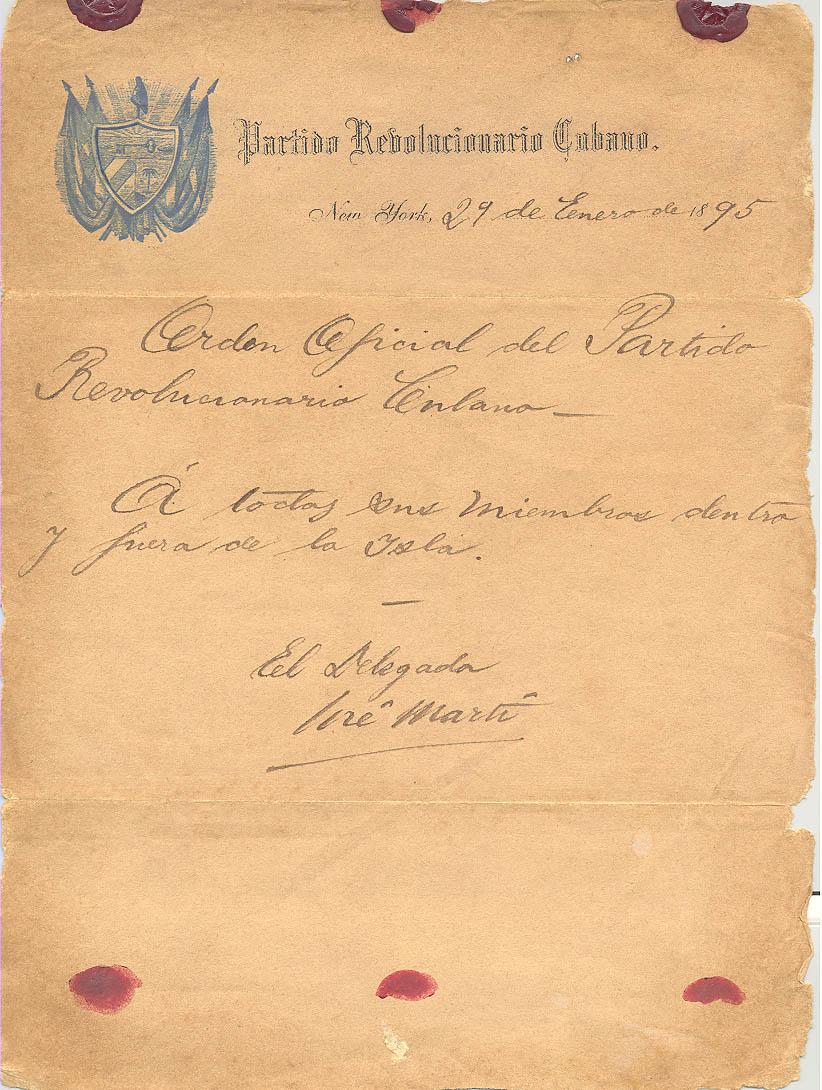 Partido Revolucionario Cubano.
New York, 29 de Enero de 1895
Orden Oficial del Partido
Revolucionario Cubano—
Á todos sus Miembros dentro
y fuera de la Isla.
—
El Delegado
José Martí